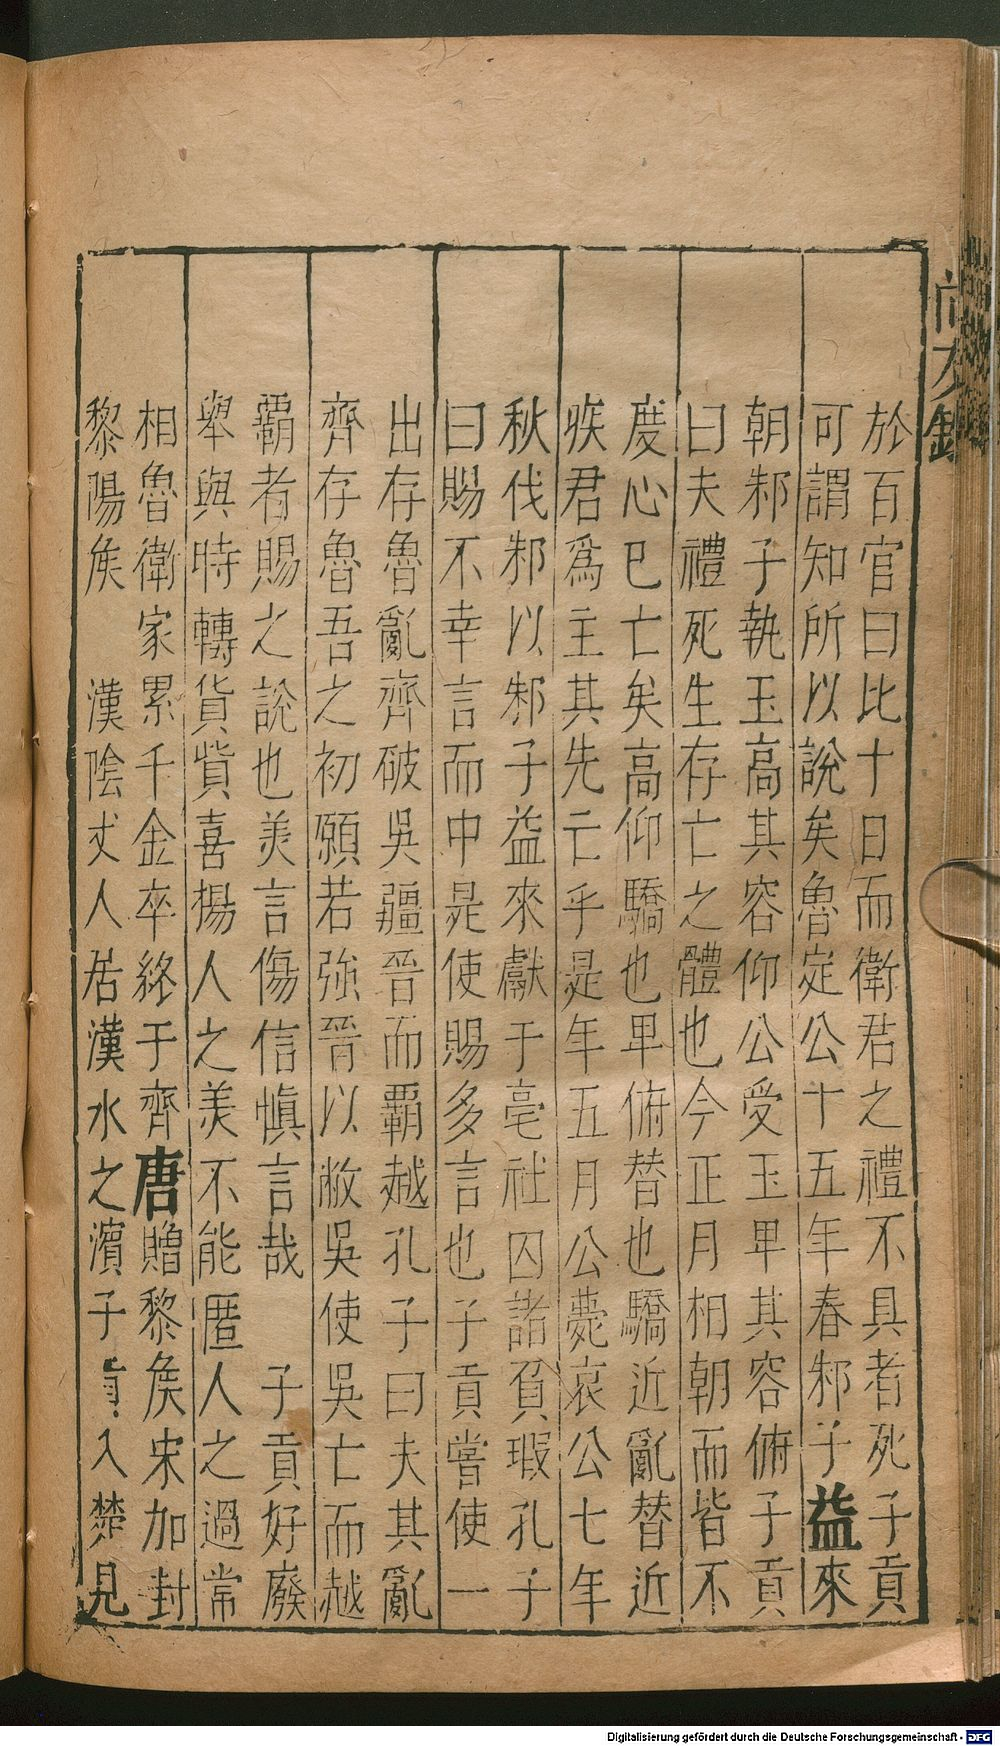 於百官曰比十日而衛君之禮不具者死子貢
可謂知所以說矣魯定公十五年春邾子益來
朝邾子執玉高其容仰公受玉卑其容俯子貢
曰夫禮死生存亡之體也今正月相朝而皆不
度心已亡矣高仰驕也卑俯替也驕近亂替近
疾君爲主其先亡乎是年五月公薨哀公七年
秋伐邾以邾子益來獻于亳社囚諸負瑕孔子
曰賜不幸言而中是使賜多言也子貢嘗使一
出存魯亂齊破吳疆晉而覇越孔子曰夫其亂
齊存魯吾之初願若強晉以敝吳使吳亡而越
覇者賜之說也美言傷信愼言哉　子貢好廢
舉與時轉貨貲喜揚人之美不能匿人之過常
相魯衛家累千金卒終于齊唐贈黎侯宋加封
黎陽侯　漢陰丈人居漢水之濱子貢入楚見
Digitalisierung gefördert durch die Deutsche Forschungsgemeinschaft - DFG